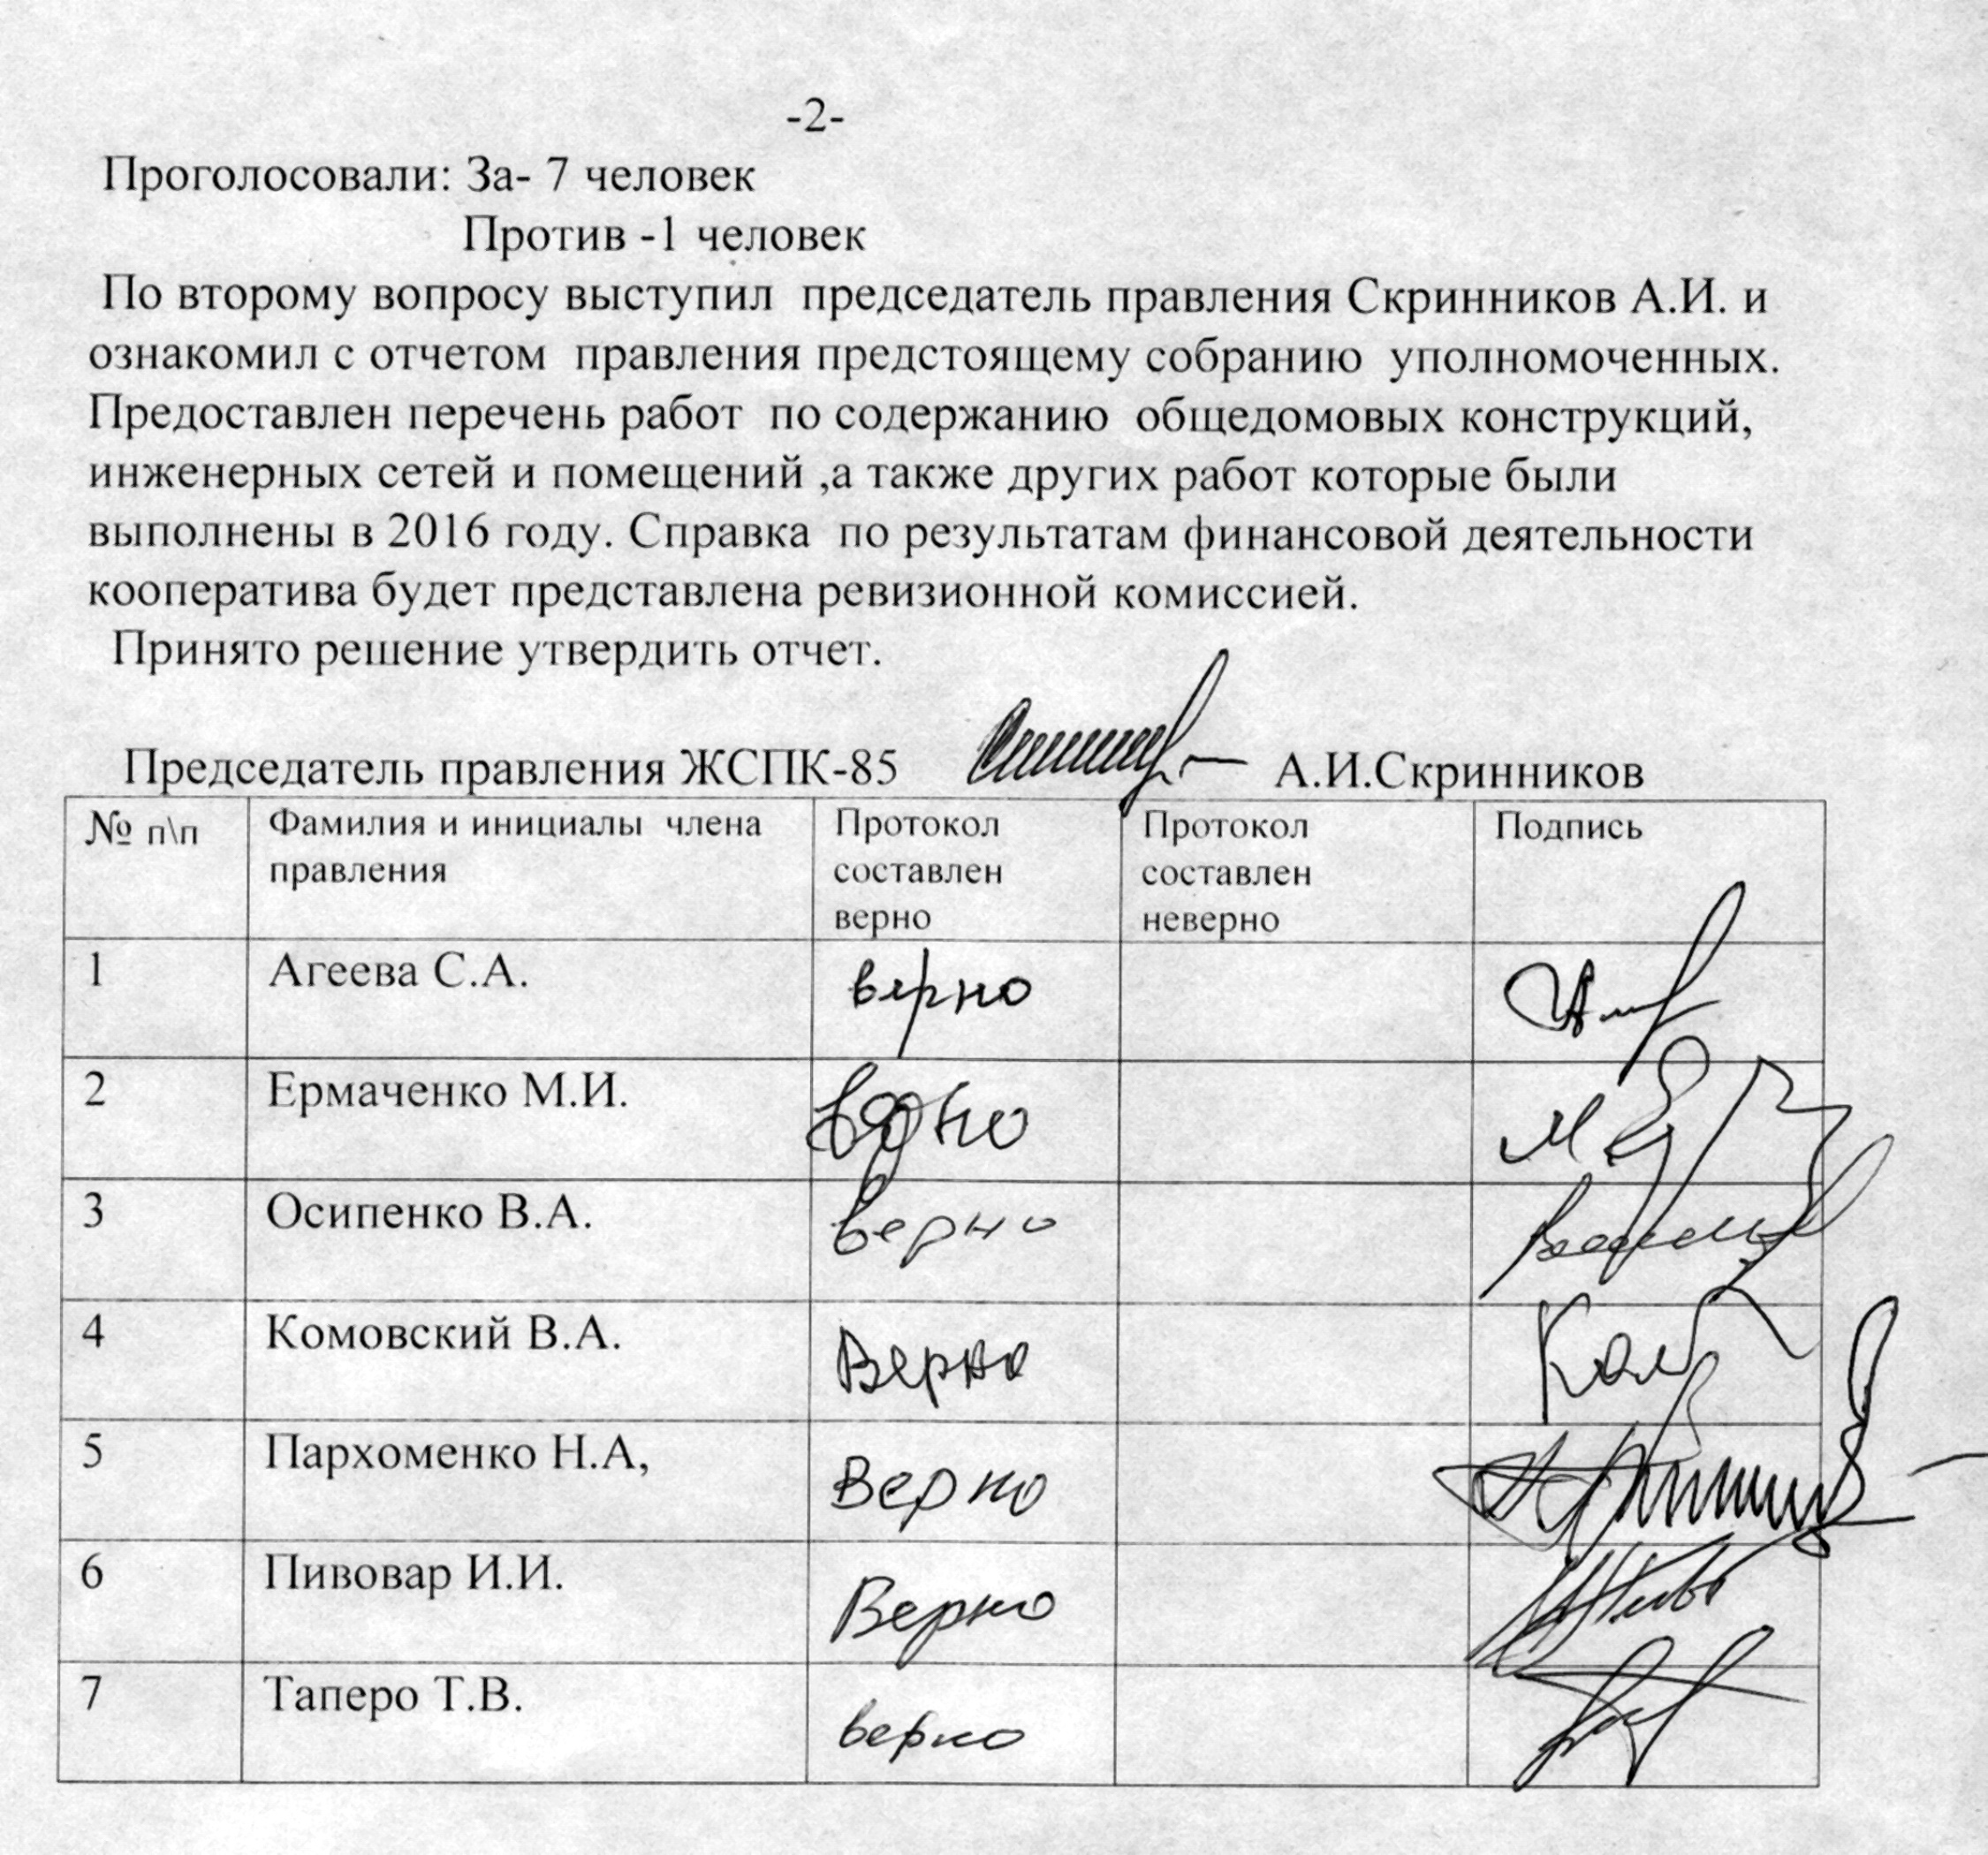 -2-
Проголосовали: За- 7 человек
Против -1 человек
По второму вопросу выступил председатель правления Скринников А.И. и
ознакомил с отчетом правления предстоящему собранию уполномоченных.
Предоставлен перечень работ по содержанию общедомовых конструкций,
инженерных сетей и помещений ,а также других работ которые были
выполнены в 2016 году. Справка по результатам финансовой деятельности
кооператива будет представлена ревизионной комиссией.
Принято решение утвердить отчет.
Председатель правления ЖСПК-85 А.И.Скринников
№ п\п Фамилия и инициалы члена правления Протокол составлен верно Протокол составлен неверно Подпись
1 Агеева С.А. верно
2 Ермаченко М.И. верно
3 Осипенко В.А. верно
4 Комовский В.А. Верно
5 Пархоменко Н.А, Верно
6 Пивовар И.И. Верно
7 Таперо Т.В. верно